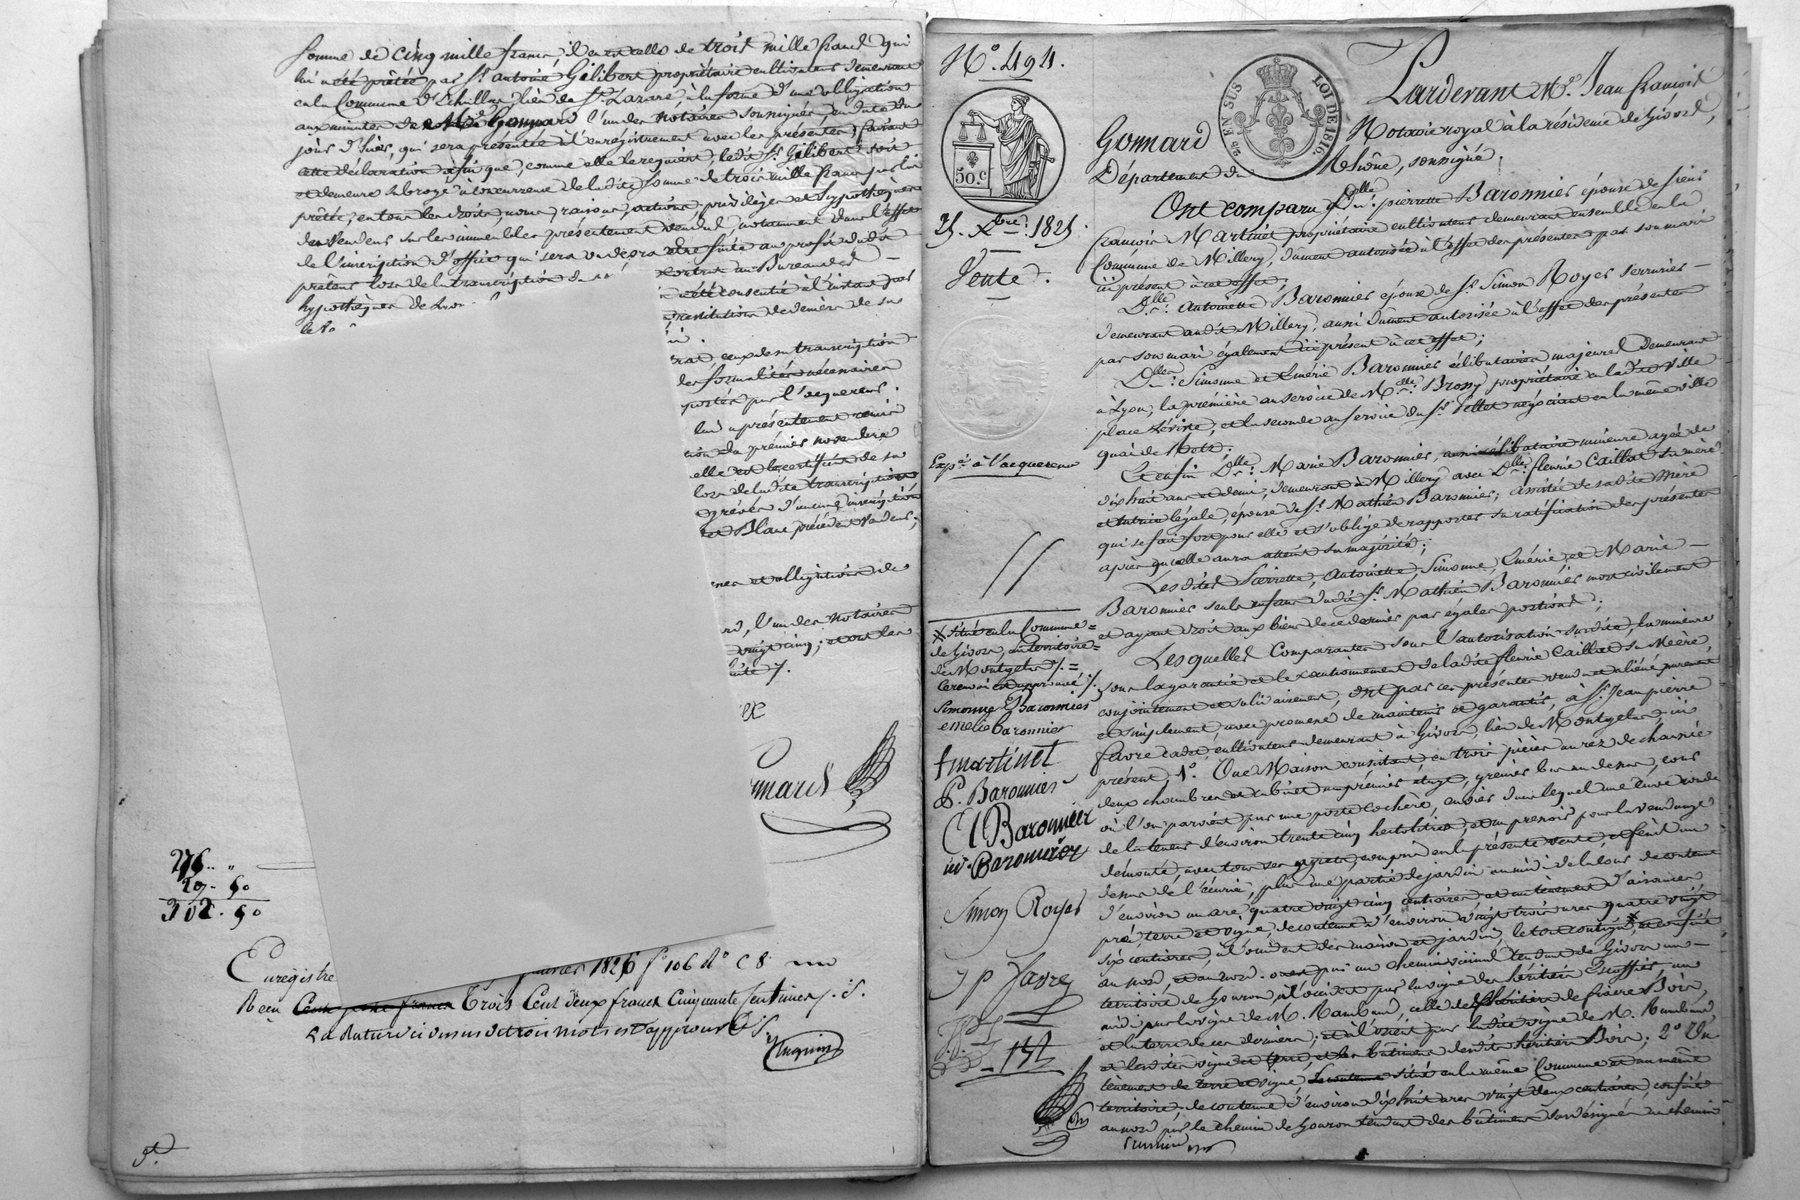 somme de cinq mille francs, il en est celle de trois mille francs qui
lui a été prêtée par Sr. antoine Gilibert propriétaire cultivateur demeurant
en la Commune d'Echallas, lieu de St. Lazare, à la forme d'une obligation
aux minutes de Me. Gonnard l'un des notaires soussignés, en date du
jour d'hier, qui sera présentée à l'enregistrement avec les présentes, faisant
cette déclaration afin que, comme elle le requiert, ledit Sr. Gilibert soit
et demeure subrogé à concurrence de ladite somme de trois mille francs par lui
prêtée, en tous les droits, noms, raisons, actions, privilèges et hypothèques
des vendeurs sur les immeubles présentement vendus, notamment dans l'effet
de l'inscription d'office qui sera ou devra être faite au profit dudit
prêteur lors de la transcription du
contrat au Bureau des
hypothèques de Lyon
a été consentie à l'instant par
restitution de deniers de sa
trat, ceux de sa transcription
des formalités nécessaires
portés par l'acquéreur.
lui a présentement remis
tion du premier novembre
elle est le certificat de sa
lors de ladite transcription
grévés d'aucune inscription
et Blanc précédent vendeur;
nes et obligations de
rd, l'un des notaires
vingt cinq; et ont les
onnard
276 .. "
27 - 60
302 . 50
Enregistré
janvier 1826 fo 106 Ro C 8
Reçu trois Cent deux francs Cinquante Centimes
La Rature ci dessus de trois mots est approuvée
No. 494.
25 EN SUS
LOI DE 1816.
50.c
25. Xbre. 1825.
Vente.
Expé. à l'acquéreur
Pardevant Me. Jean françois
Gonnard Notaire royal à la résidence de Givors,
Département du Rhône, soussigné,
Ont comparu Dlle. pierrette Baronnier épouse de sieur
françois Martinet propriétaire cultivateur demeurant ensemble en la
Commune de Millery, dument autorisée à l'effet des présentes par son mari
ici présent à cet effet;
Dlle. Antoinette Baronnier épouse de Sr. Simon Royer serrurier
demeurant audit Millery, aussi dument autorisée à l'effet des présentes
par son mari également ici présent à cet effet;
Dlles. Simonne et Emérie Baronnier célibataires majeures demeurant
à Lyon, la première au service de Melle. Brossy propriétaire en ladite ville
place Léviste, et la seconde au service du Sr. Pellet négociant en la même ville
quai de Retz;
Et enfin Dlle. Marie Baronnier, aussi célibataire mineure agée de
dix huit ans et demi, demeurant à Millery avec Dlle. fleurie Caillat sa mère
et tutrice légale, épouse de Sr. Mathieu Baronnier; assistée de sadite Mère
qui se fait fort pour elle et s'oblige de rapporter sa ratification des présentes
après qu'elle aura atteint sa majorité;
Lesdites Pierrette, Antoinette, Simonne, Emérie et Marie
Baronnier seuls enfans dudit Sr. Mathieu Baronnier mort civilement
et ayant droit aux biens de ce dernier par égales portions;
Lesquelles Comparantes sous l'autorisation susdite, la mineure
sous la garantie et le cautionnement de ladite fleurie Caillat sa Mère,
conjointement et solidairement, ont par ces présentes vendu et aliéné purement
et simplement, avec promesse de maintenir et garantir, à Sr. Jean pierre
favre cadet, cultivateur demeurant à Givors, lieu de Montgelas, ici
présent, 1o. Une Maison consistant en trois pièces au rez de chaussée
deux chambres et cabinet au premier étage, grenier bas au dessus, cour
où l'on parvient par une porte cochère, cuvier dans lequel une cuve ronde
de la teneur d'environ trente cinq hectolitres, et un pressoir pour la vendange
démonté, avec tous ses agrets, compris en la présente vente, et fenil au
dessus de l'écurie, plus une partie de jardin au midi de la cour de contenue
d'environ un are quatre vingt cinq centiares et un tènement d'aisances
pré, terre et vigne, de contenue d'environ vingt trois ares quatre vingt
six centiares, à l'occident des maison et jardin, le tout contigu, et confiné
au nord, par un chemin vicinal tendant de Givors au
territoire de Gouron, à l'occident par la vigne des héritiers Escoffier, au
midi par la vigne de M. Rambaud, celle des héritiers de pierre Boir,
et la terre de ces derniers; et à l'orient par ladite vigne de M. Rambaud,
et lesdites vigne et pré, et les bâtimens desdits héritiers Boir; 2o Un
tènement de terre et vigne, situé en la même Commune et au même
territoire, de contenue d'environ dix huit ares vingt deux centiares, confiné
au nord par le chemin de Gouron tendant des bâtimens sus désignés au chemin
X située en la Commune
de Givors, au territoire
de Montgelas ./.
Ce renvoi est approuvé ./.
Simonne Baronnier
emelie baronnier
f martinet
P. Baronnier
A Baronnier
M. Baronnier
Simon Royer
JP favre